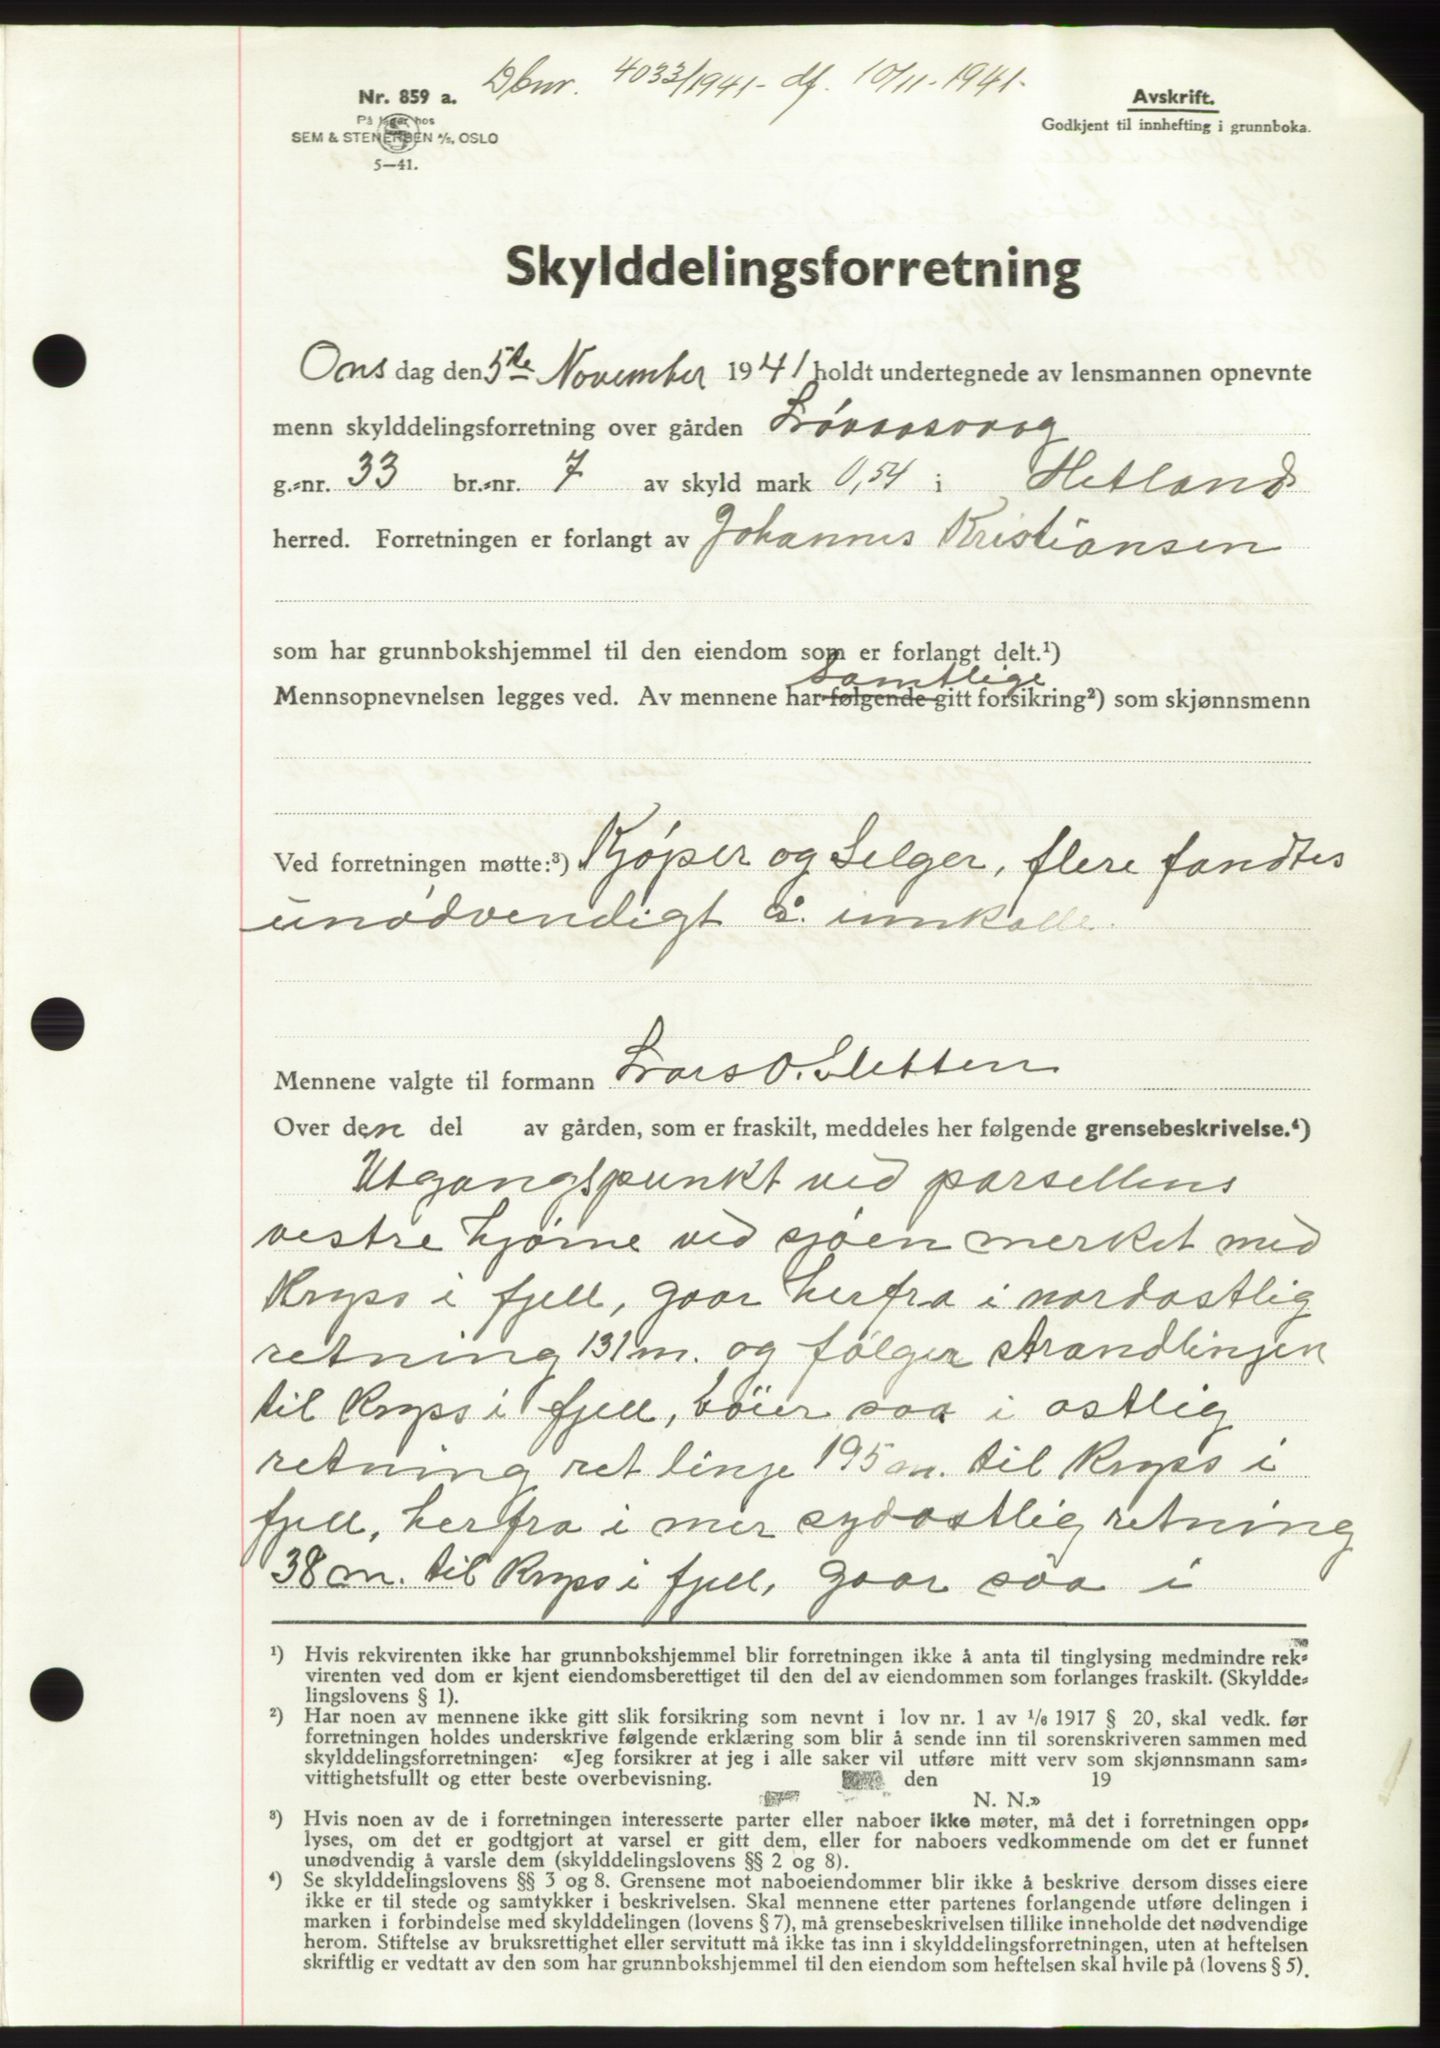 Dbnr. 4033/1941 - df. 10/11 - 1941.
Nr. 859 a.
På lager hos
SEM & STENERSEN A/S, OSLO
5—41.
Avskrift.
Godkjent til innhefting i grunnboka.
Skylddelingsforretning
Ons dag den 5te November 1941 holdt undertegnede av lensmannen opnevnte
menn skylddelingsforretning over gården
g.=nr. 33 br.=nr. 7 av skyld mark 0,54 i Hetland
herred. Forretningen er forlangt av Johannes Kristiansen
som har grunnbokshjemmel til den eiendom som er forlangt delt.¹)
samtlige
Mennsopnevnelsen legges ved. Av mennene har følgende gitt forsikring²) som skjønnsmenn
Ved forretningen møtte:³) Kjøper og Selger, flere fandtes
unødvendigt å innkalle.
Mennene valgte til formann Lars O. Sletten
Over den del av gården, som er fraskilt, meddeles her følgende grensebeskrivelse.⁴)
Utgangspunkt ved parsellens
vestre hjørne ved sjøen merket med
Kryss i fjell, gaar herfra i nordostlig
retning 131 m. og følger strandlinjen
til Kryss i fjell, bøier saa i ostlig
retning ret linje 195 m. til Kryss i
fjell, herfra i mer sydostlig retning
38 m. til Kryss i fjell, gaar saa i
¹) Hvis rekvirenten ikke har grunnbokshjemmel blir forretningen ikke å anta til tinglysing medmindre rek=
virenten ved dom er kjent eiendomsberettiget til den del av eiendommen som forlanges fraskilt. (Skyldde=
lingslovens § 1).
²) Har noen av mennene ikke gitt slik forsikring som nevnt i lov nr. 1 av 1/6 1917 § 20, skal vedk. før
forretningen holdes underskrive følgende erklæring som blir å sende inn til sorenskriveren sammen med
skylddelingsforretningen: «Jeg forsikrer at jeg i alle saker vil utføre mitt verv som skjønnsmann sam=
vittighetsfullt og etter beste overbevisning. den 19
N. N.»
³) Hvis noen av de i forretningen interesserte parter eller naboer ikke møter, må det i forretningen opp=
lyses, om det er godtgjort at varsel er gitt dem, eller for naboers vedkommende om det er funnet
unødvendig å varsle dem (skylddelingslovens §§ 2 og 8).
⁴) Se skylddelingslovens §§ 3 og 8. Grensene mot naboeiendommer blir ikke å beskrive dersom disses eiere
ikke er til stede og samtykker i beskrivelsen. Skal mennene etter partenes forlangende utføre delingen i
marken i forbindelse med skylddelingen (lovens § 7), må grensebeskrivelsen tillike inneholde det nødvendige
herom. Stiftelse av bruksrettighet eller servitutt må ikke tas inn i skylddelingsforretningen, uten at heftelsen
skriftlig er vedtatt av den som har grunnbokshjemmel til den eiendom som heftelsen skal hvile på (lovens § 5).